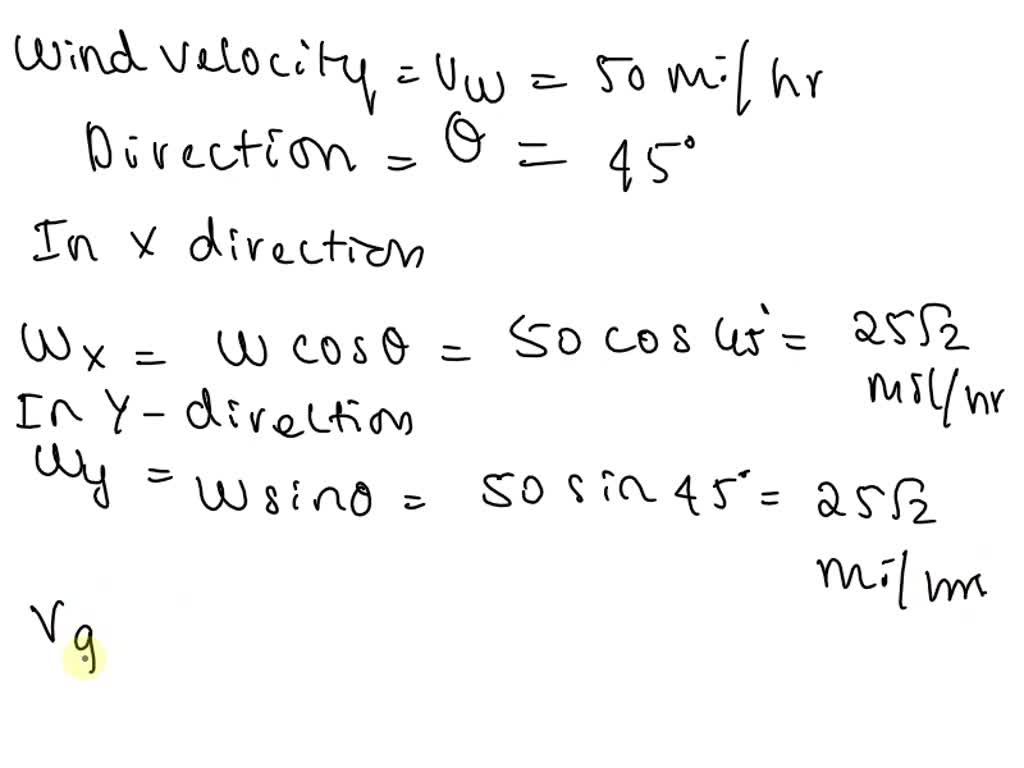 Wind velocity = Vw = 50 mi/hr
Direction = θ = 45°
In x direction
Wx = W cosθ = 50 cos 45° = 25√2
mil/hr
In Y-direction
Wy = W sinθ = 50 sin 45° = 25√2
mi/
Vg